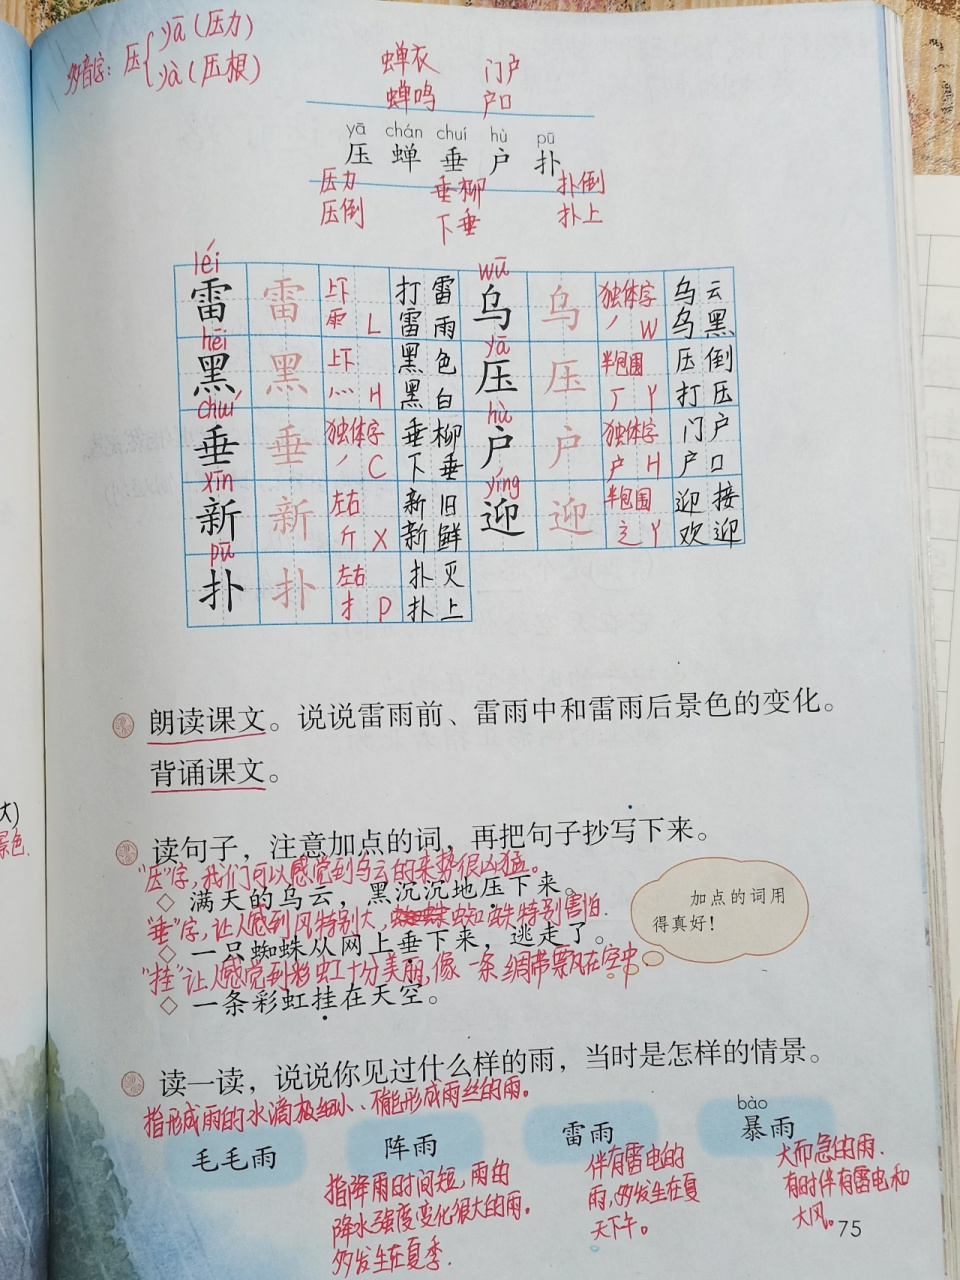 多音字：压{yā（压力）
yà（压根）
蝉衣 门户
蝉鸣 户口
yā chán chuí hù pū
压 蝉 垂 户 扑
压力 垂柳 扑倒
压倒 下垂 扑上
léi wū
雷 雷 上下 打雷 乌 乌 独体字 乌云
雨 L 雷雨 丿 W 乌黑
hēi yā
黑 黑 上下 黑色 压 压 半包围 压倒
灬 H 黑白 厂 Y 打压
chuí hù
垂 垂 独体字 垂柳 户 户 独体字 门户
丿 C 下垂 户 H 户口
xīn yíng
新 新 左右 新旧 迎 迎 半包围 迎接
斤 X 新鲜 辶 Y 欢迎
pū
扑 扑 左右 扑灭
扌 P 扑上
朗读课文。说说雷雨前、雷雨中和雷雨后景色的变化。
背诵课文。
读句子，注意加点的词，再把句子抄写下来。
"压"字，我们可以感觉到乌云的来势很凶猛。
◇ 满天的乌云，黑沉沉地压下来。
加点的词用
得真好！
"垂"字，让人感到风特别大，蜘蛛特别害怕.
◇ 一只蜘蛛从网上垂下来，逃走了。
"挂"让人感觉到彩虹十分美丽，像一条绸带飘在空中.
◇ 一条彩虹挂在天空。
读一读，说说你见过什么样的雨，当时是怎样的情景。
指形成雨的水滴极细小、不能形成雨丝的雨。
bào
毛毛雨 阵雨 雷雨 暴雨
指降雨时间短，雨的
降水强度变化很大的雨。
多发生在夏季.
伴有雷电的
雨，多发生在夏
天下午。
大而急的雨.
有时伴有雷电和
大风。
75
大)
景色.